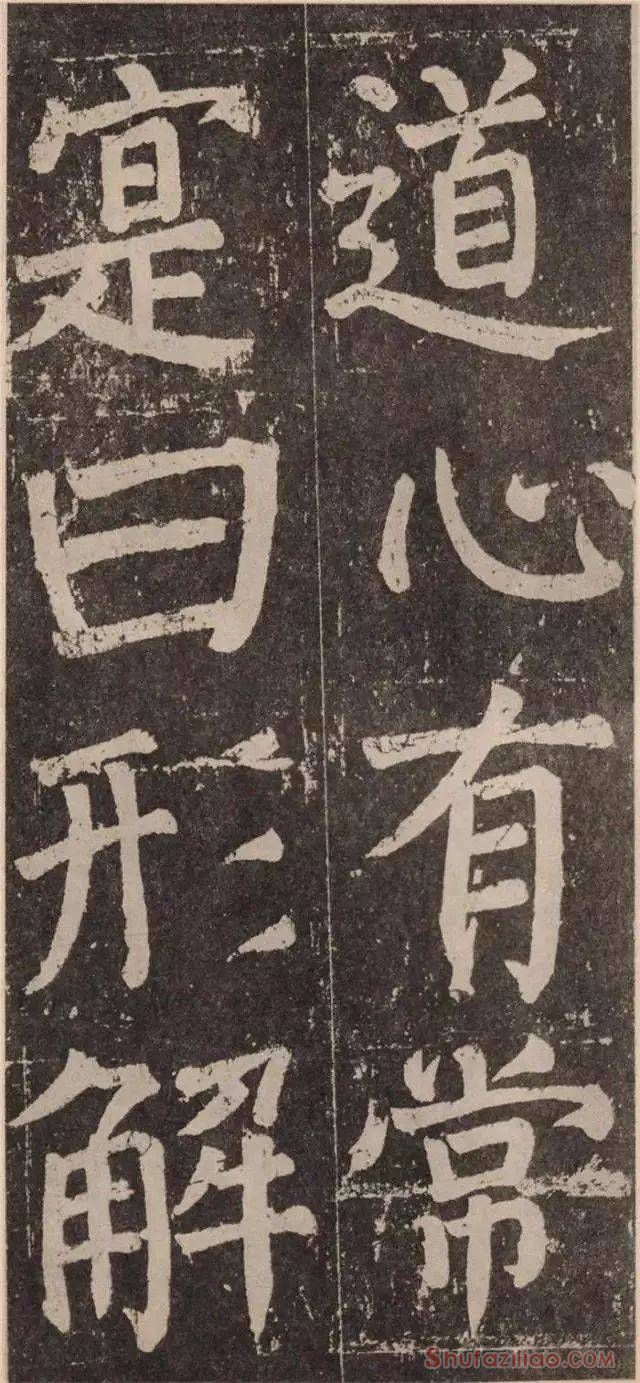 道心有常
寔曰形解
Shufaziliao.COM